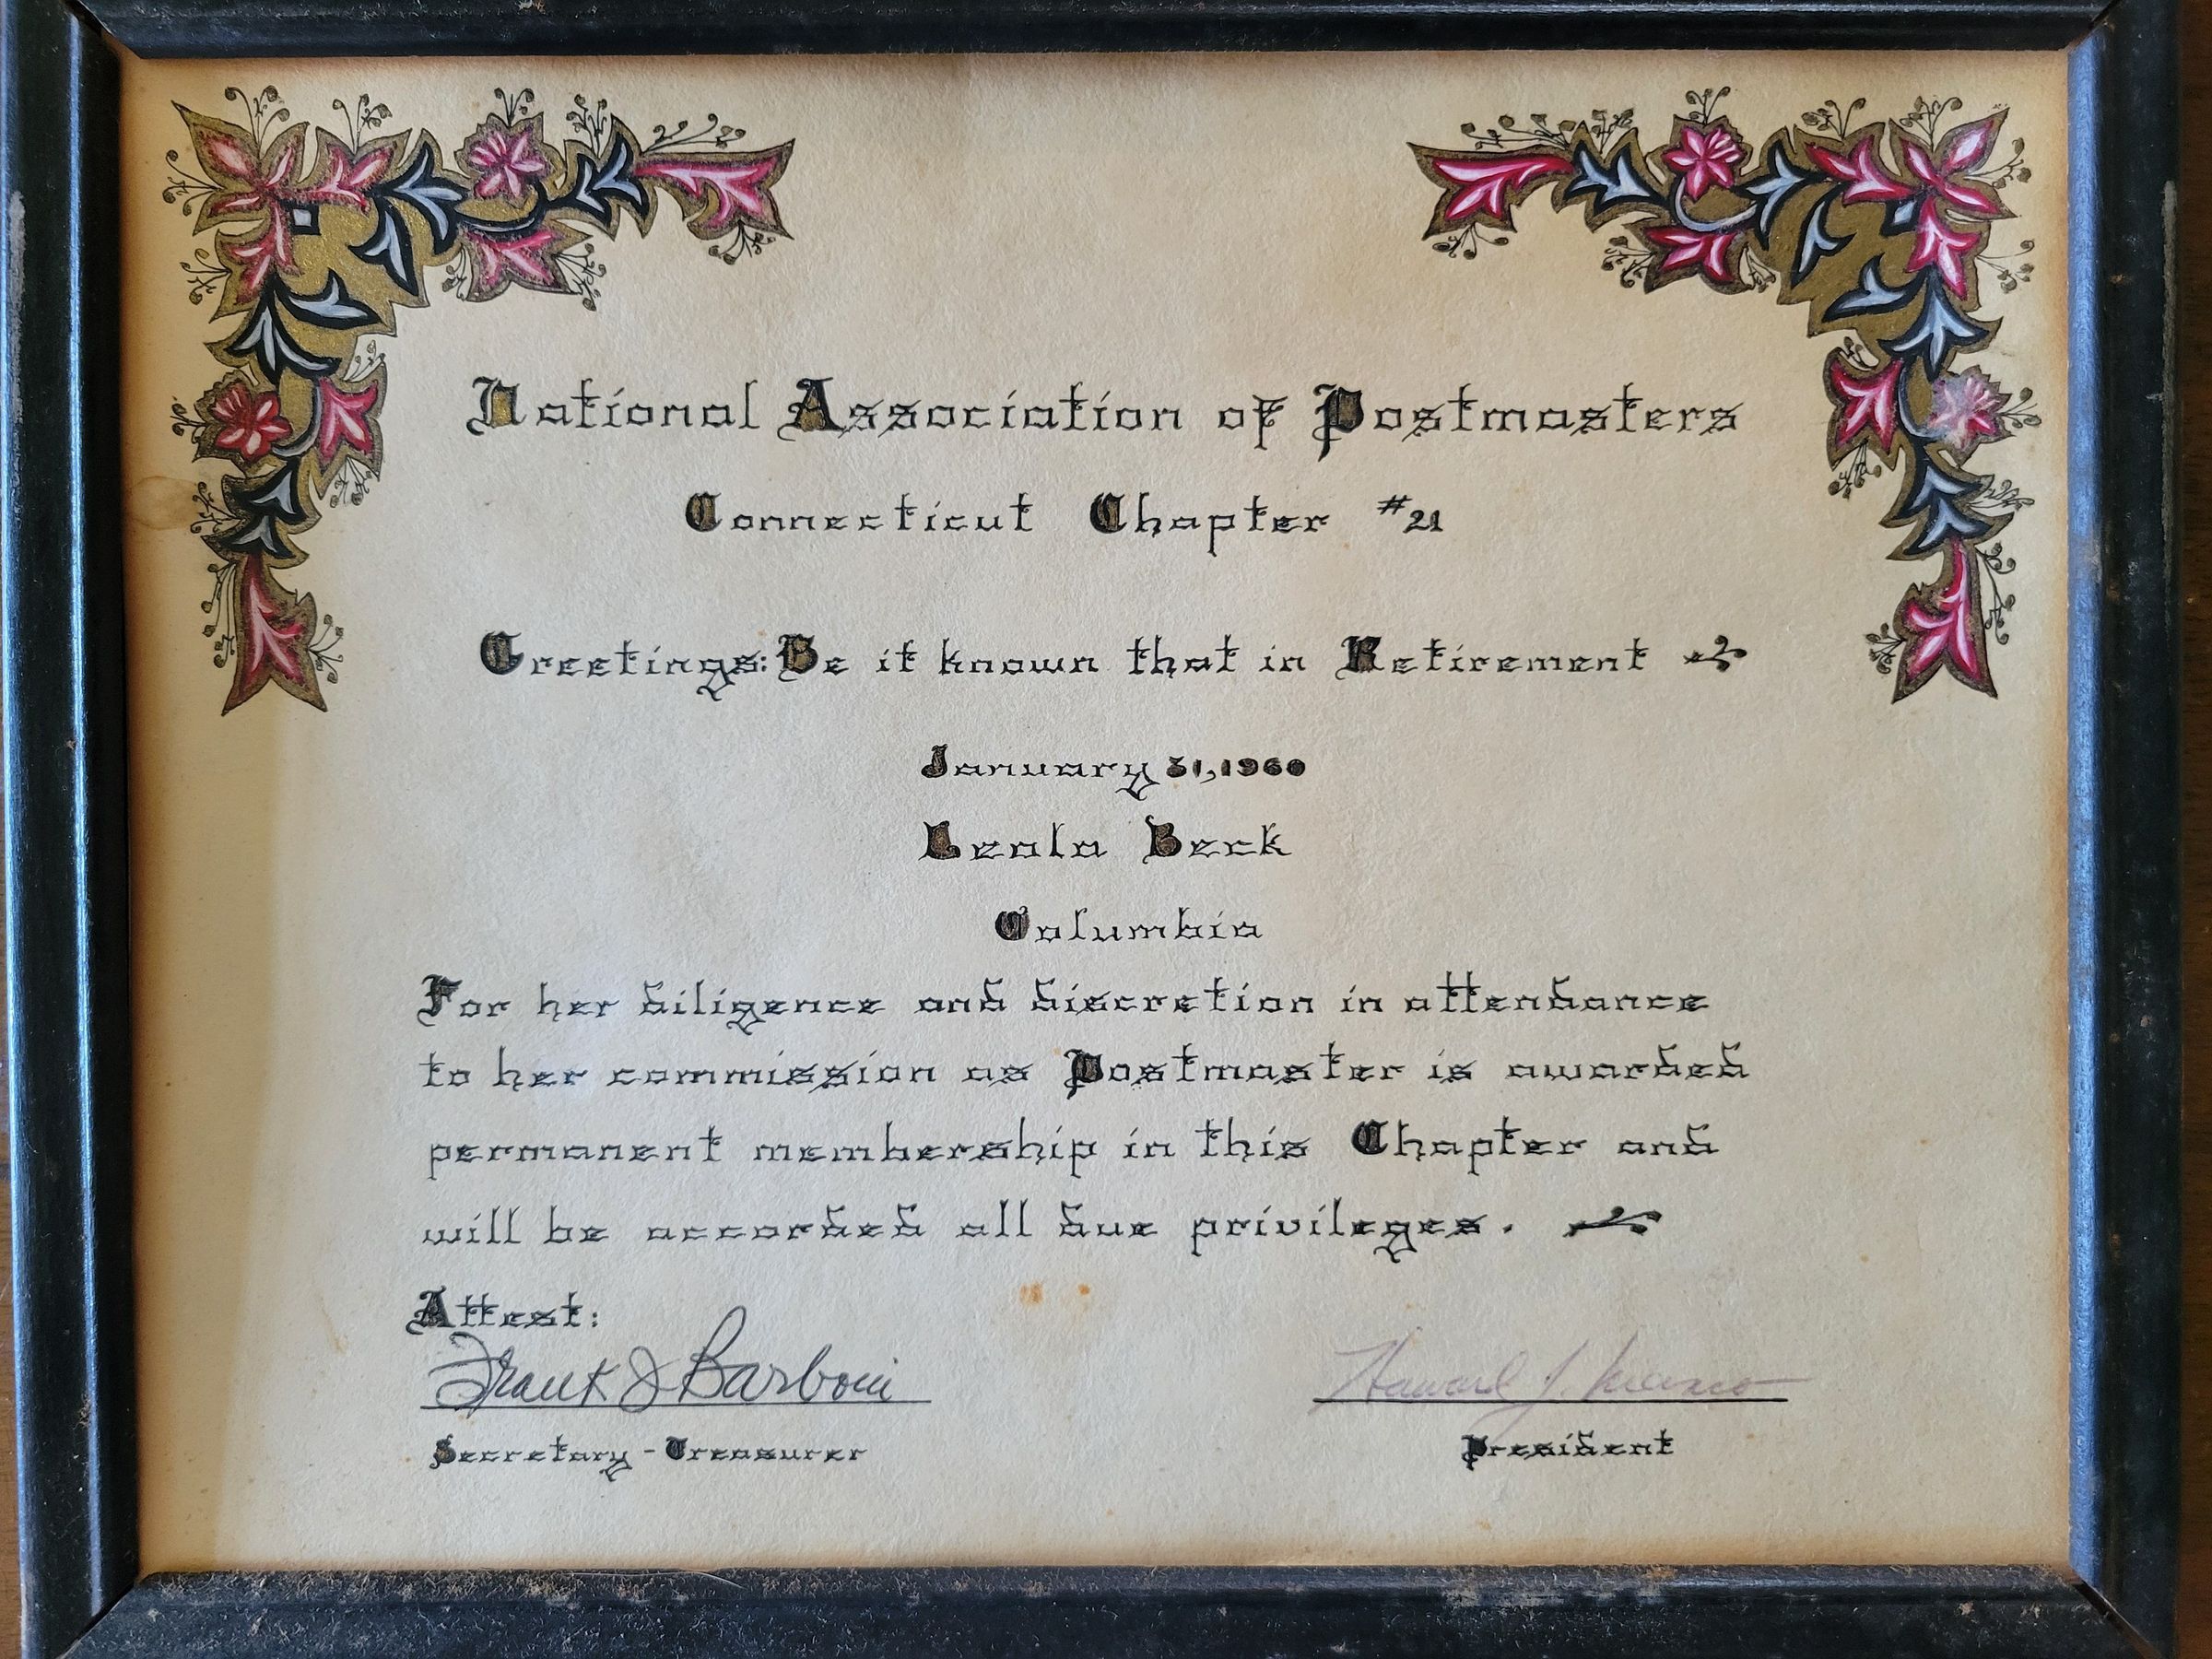 National Association of Postmasters
Connecticut Chapter #21
Greetings: Be it known that in Retirement
January 31, 1960
Leola Beck
Columbia
For her diligence and discretion in attendance
to her commission as Postmaster is awarded
permanent membership in this Chapter and
will be accorded all due privileges.
Attest:
Frank J Barboni
Howard J.
Secretary - Treasurer
President